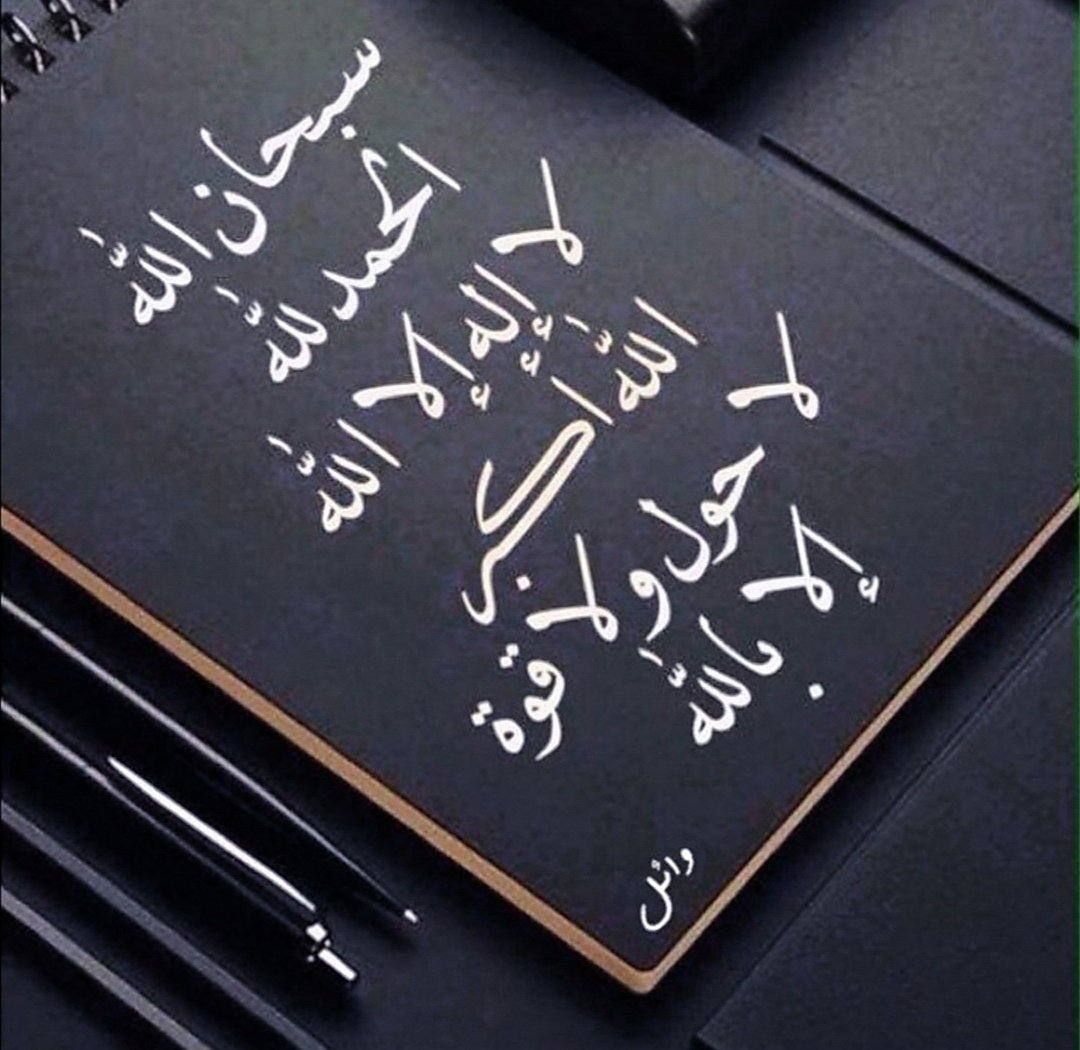 سبحان الله
الحمد لله
لا إله إلا الله
الله أكبر
لا حول ولا قوة
إلا بالله
وائل